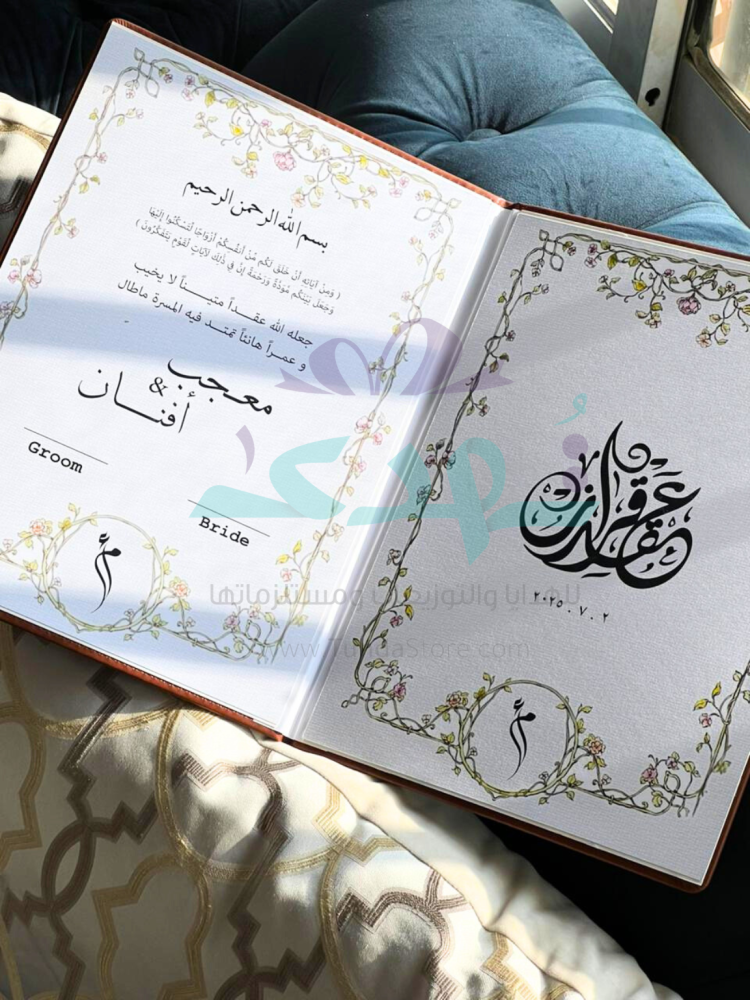 بسم الله الرحمن الرحيم
( وَمِنْ آيَاتِهِ أَنْ خَلَقَ لَكُم مِّنْ أَنفُسِكُمْ أَزْوَاجًا لِّتَسْكُنُوا إِلَيْهَا
وَجَعَلَ بَيْنَكُم مَّوَدَّةً وَرَحْمَةً إِنَّ فِي ذَلِكَ لَآيَاتٍ لِّقَوْمٍ يَتَفَكَّرُونَ )
جعله الله عقداً متيناً لا يخيب
و عمراً هانئاً تمتد فيه المسرة ماطال
معجب
&
أفنان
Groom
Bride
م أ
عقد قران
٢٠٢٥.٧.٢
م أ
للهدايا والتوزيعات ومستلزماتها
www.TuhdaStore.com